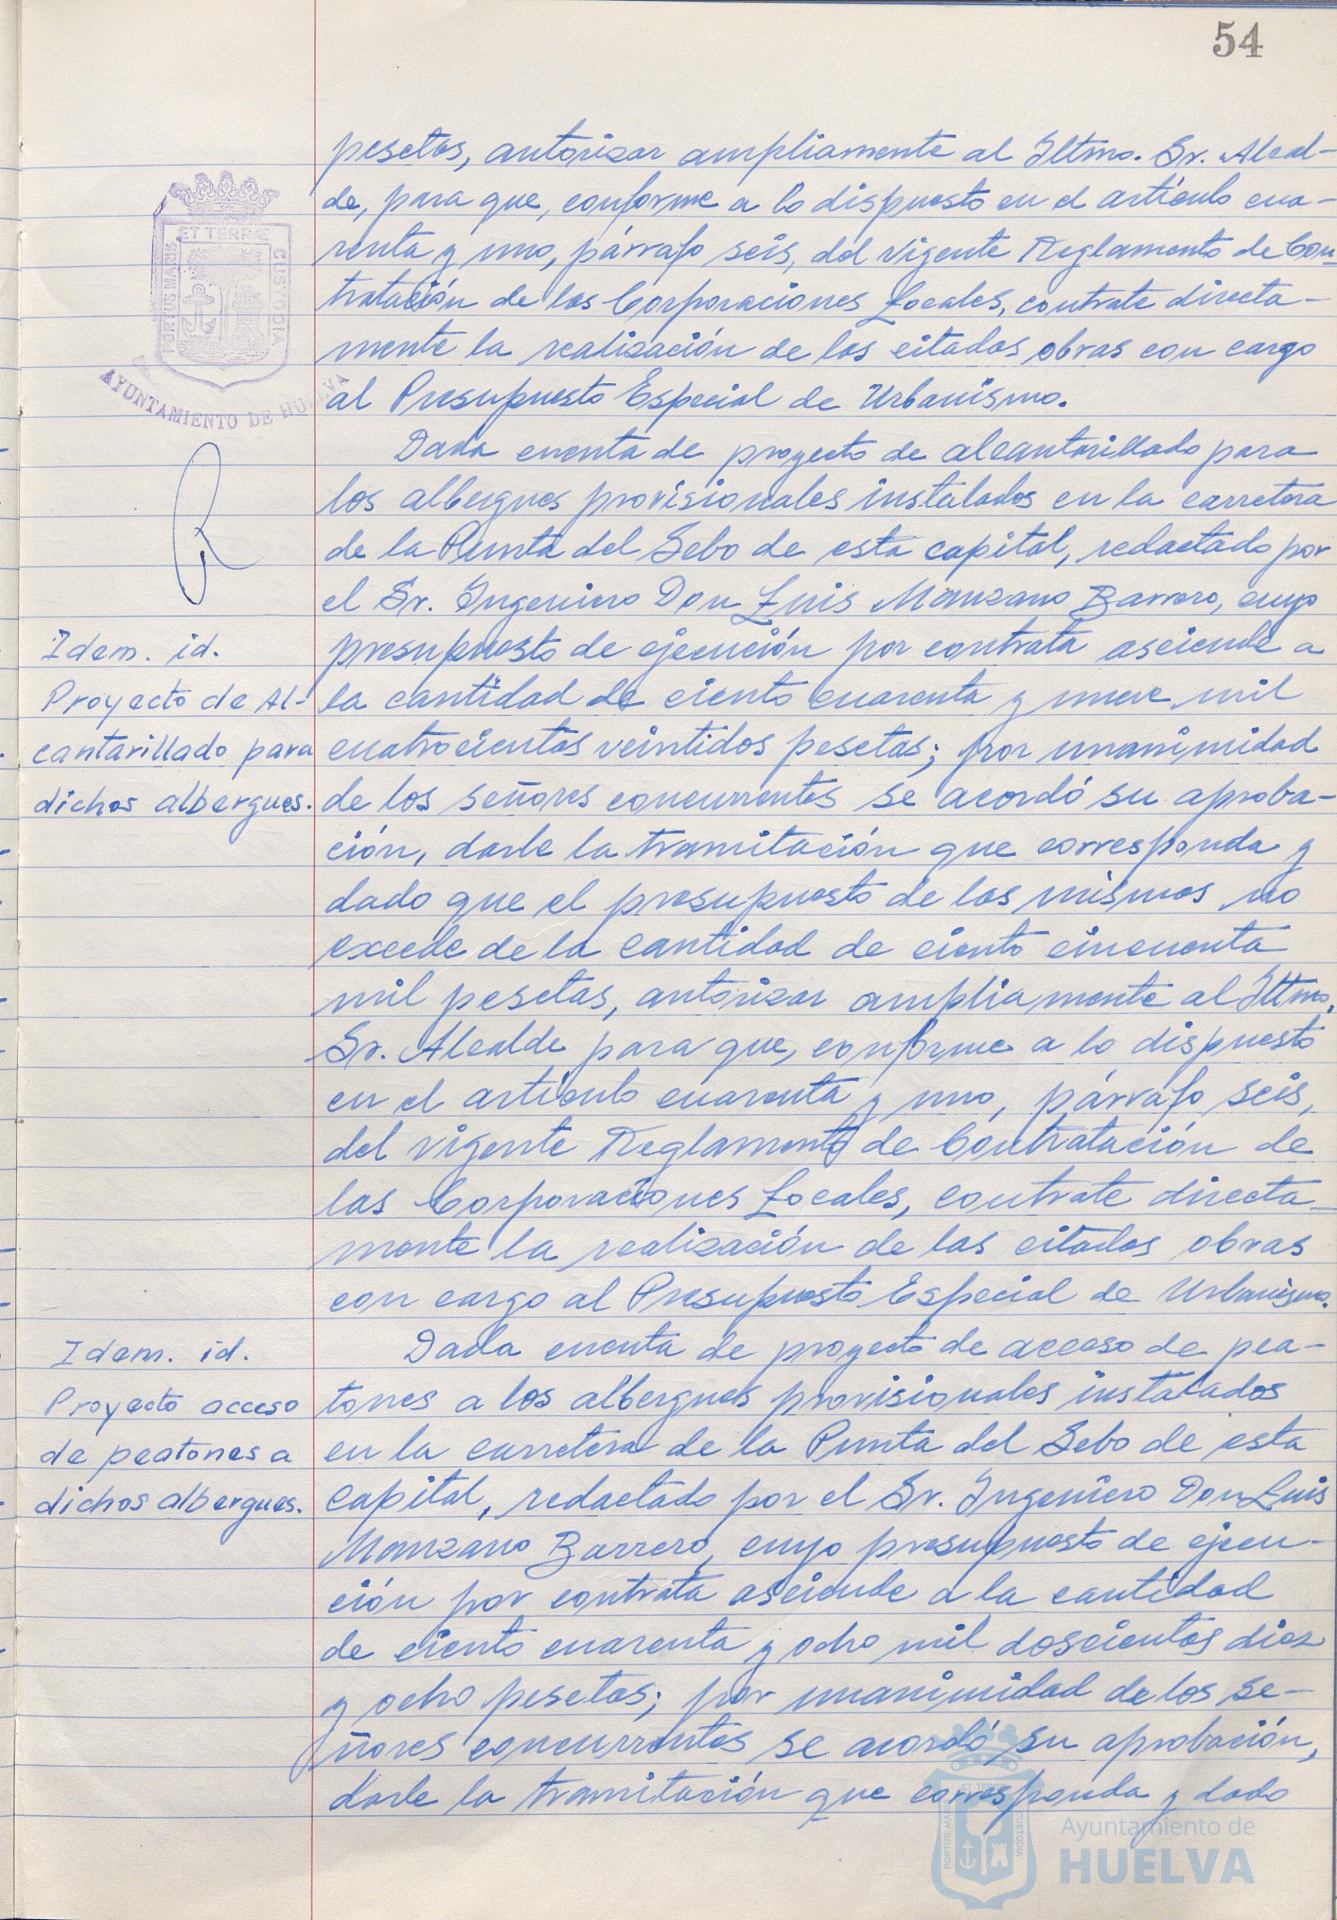 54
pesetas, autorizar ampliamente al Iltmo. Sr. Alcal-
de, para que, conforme a lo dispuesto en el artículo cua-
renta y uno, párrafo seis, del vigente Reglamento de Con
tratación de las Corporaciones Locales, contrate directa-
mente la realización de las citadas obras con cargo
al Presupuesto Especial de Urbanismo.
Dada cuenta de proyecto de alcantarillado para
los albergues provisionales instalados en la carretera
de la Punta del Sebo de esta capital, redactado por
el Sr. Ingeniero Don Luis Manzano Barrero, cuyo
presupuesto de ejecución por contrata asciende a
la cantidad de ciento cuarenta y nueve mil
cuatrocientas veintidos pesetas; por unanimidad
de los señores concurrentes se acordó su aproba-
ción, darle la tramitación que corresponda y
dado que el presupuesto de las mismas no
excede de la cantidad de ciento cincuenta
mil pesetas, autorizar ampliamente al Iltmo.
Sr. Alcalde para que, conforme a lo dispuesto
en el artículo cuarenta y uno, párrafo seis,
del vigente Reglamento de Contratación de
las Corporaciones Locales, contrate directa-
mente la realización de las citadas obras
con cargo al Presupuesto Especial de Urbanismo.
Dada cuenta de proyecto de acceso de pea-
tones a los albergues provisionales instalados
en la carretera de la Punta del Sebo de esta
capital, redactado por el Sr. Ingeniero Don Luis
Manzano Barrero, cuyo presupuesto de ejecu-
ción por contrata asciende a la cantidad
de ciento cuarenta y ocho mil doscientas diez
y ocho pesetas; por unanimidad de los se-
ñores concurrentes se acordó su aprobación,
darle la tramitación que corresponda y dado
ET TERRAE
PORTUS MARIS
CUSTODIA
AYUNTAMIENTO DE HUELVA
Idem. id.
Proyecto de Al-
cantarillado para
dichos albergues.
Idem. id.
Proyecto acceso
de peatones a
dichos albergues.
Ayuntamiento de
HUELVA